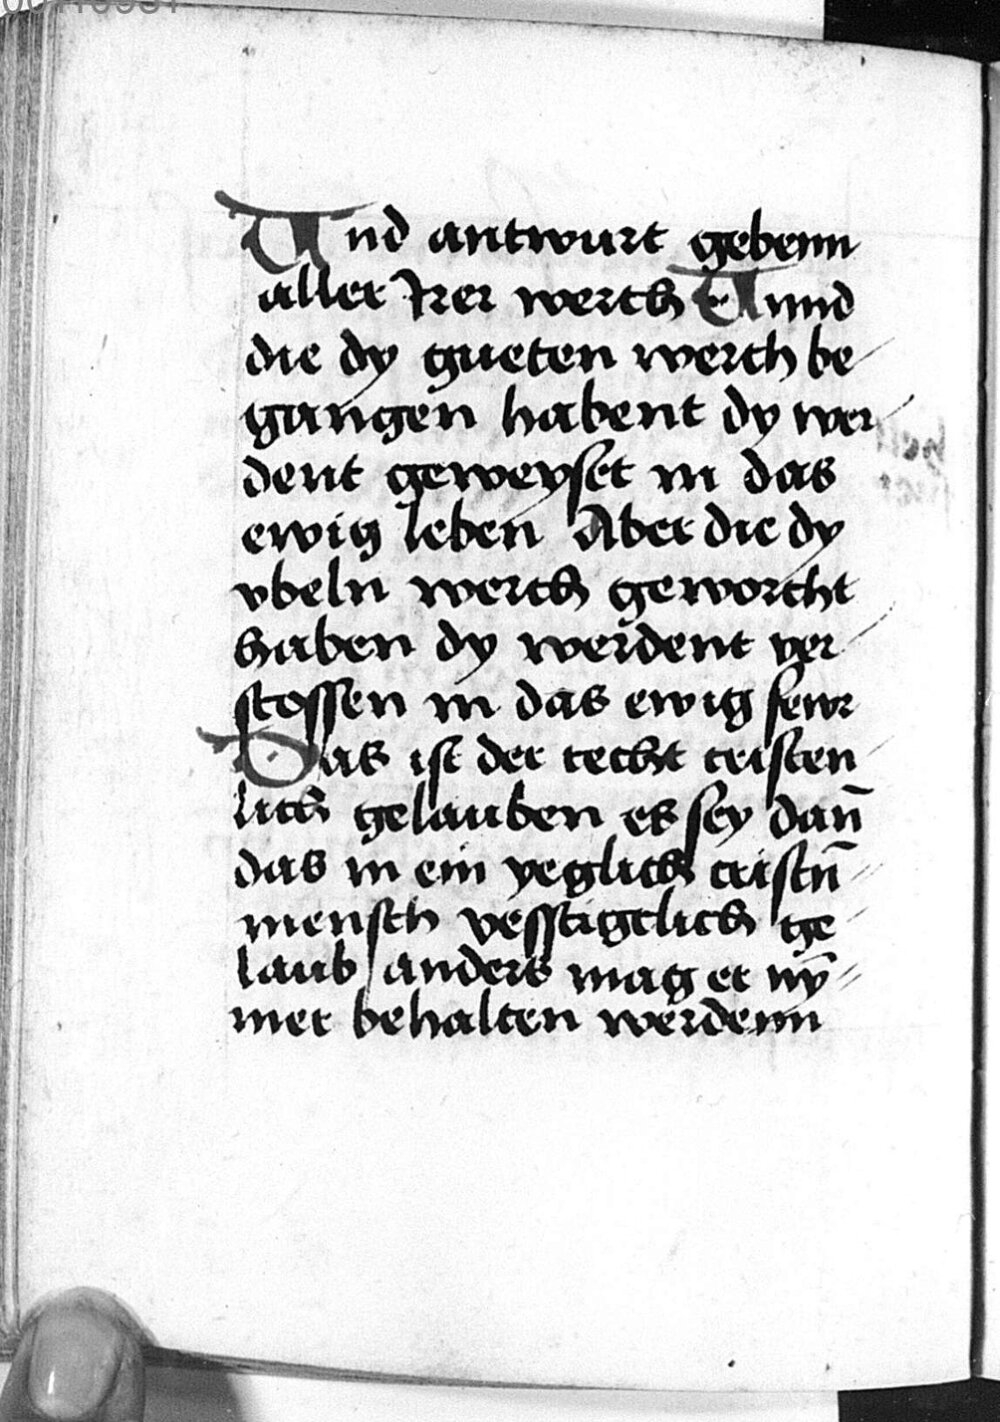 Vnd antwurt gebenn
aller Irer werch Vnnd
die dy gueten werch be
gangen habent dy wer
dent geweyset in das
ewig leben Aber die dy
vbeln werch geworcht
haben dy werdent ver
stossen in das ewig fewr
Das ist der recht cristen
lich gelauben es sey dan̄
das in ein yeglich cristn̄
mensch vesstigclich ge
laub / anders mag er nȳ
mer behalten werdenn